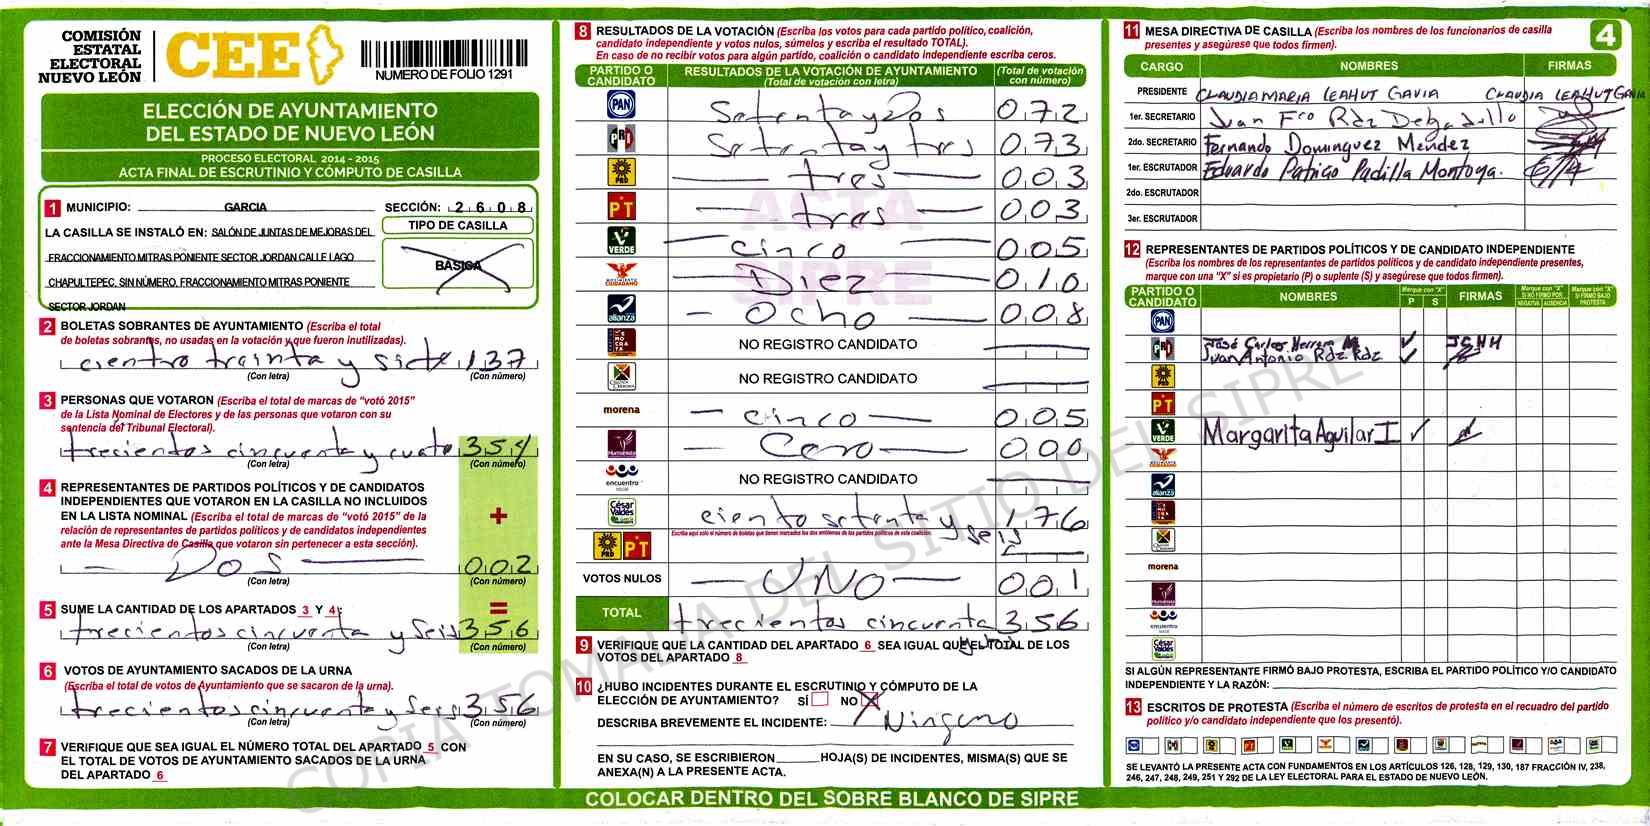 COMISIÓN
ESTATAL
ELECTORAL
NUEVO LEÓN
CEE
NUMERO DE FOLIO 1291
ELECCIÓN DE AYUNTAMIENTO
DEL ESTADO DE NUEVO LEÓN
PROCESO ELECTORAL 2014 - 2015
ACTA FINAL DE ESCRUTINIO Y CÓMPUTO DE CASILLA
1 MUNICIPIO: GARCIA SECCIÓN: 2 6 0 8
LA CASILLA SE INSTALÓ EN: SALÓN DE JUNTAS DE MEJORAS DEL
FRACCIONAMIENTO MITRAS PONIENTE SECTOR JORDAN CALLE LAGO
CHAPULTEPEC, SIN NÚMERO, FRACCIONAMIENTO MITRAS PONIENTE
SECTOR JORDAN
TIPO DE CASILLA
BASICA
2 BOLETAS SOBRANTES DE AYUNTAMIENTO (Escriba el total
de boletas sobrantes, no usadas en la votación y que fueron inutilizadas).
ciento trainta y siete 137
(Con letra) (Con número)
3 PERSONAS QUE VOTARON (Escriba el total de marcas de "votó 2015"
de la Lista Nominal de Electores y de las personas que votaron con su
sentencia del Tribunal Electoral).
trecientos cincuenta y cuato 354
(Con letra) (Con número)
4 REPRESENTANTES DE PARTIDOS POLÍTICOS Y DE CANDIDATOS
INDEPENDIENTES QUE VOTARON EN LA CASILLA NO INCLUIDOS
EN LA LISTA NOMINAL (Escriba el total de marcas de "votó 2015" de la
relación de representantes de partidos políticos y de candidatos independientes
ante la Mesa Directiva de Casilla que votaron sin pertenecer a esta sección).
+
— Dos — 002
(Con letra) (Con número)
5 SUME LA CANTIDAD DE LOS APARTADOS 3 Y 4:
=
trecientos cincuenta y seis 356
(Con letra) (Con número)
6 VOTOS DE AYUNTAMIENTO SACADOS DE LA URNA
(Escriba el total de votos de Ayuntamiento que se sacaron de la urna).
trecientos cincuenta y seis 356
(Con letra) (Con número)
7 VERIFIQUE QUE SEA IGUAL EL NÚMERO TOTAL DEL APARTADO 5 CON
EL TOTAL DE VOTOS DE AYUNTAMIENTO SACADOS DE LA URNA
DEL APARTADO 6
8 RESULTADOS DE LA VOTACIÓN (Escriba los votos para cada partido político, coalición,
candidato independiente y votos nulos, súmelos y escriba el resultado TOTAL).
En caso de no recibir votos para algún partido, coalición o candidato independiente escriba ceros.
PARTIDO O CANDIDATO
RESULTADOS DE LA VOTACIÓN DE AYUNTAMIENTO
(Total de votación con letra)
(Total de votación con número)
PAN Setenta y Dos 072
PRD Setenta y tres 073
PRD — tres — 003
PT — tres — 003
VERDE — cinco — 005
MOVIMIENTO CIUDADANO — Diez — 010
alianza — Ocho — 008
NO REGISTRO CANDIDATO
NO REGISTRO CANDIDATO
morena — cinco — 005
Humanista — Cero — 000
encuentro social NO REGISTRO CANDIDATO
César Valdés ciento setenta y seis 176
Escriba aquí solo el número de boletas que tienen marcados los dos emblemas de los partidos políticos de esta coalición.
PRD PT
VOTOS NULOS — UNO — 001
TOTAL trecientos cincuenta y seis 356
9 VERIFIQUE QUE LA CANTIDAD DEL APARTADO 6 SEA IGUAL QUE EL TOTAL DE LOS
VOTOS DEL APARTADO 8
10 ¿HUBO INCIDENTES DURANTE EL ESCRUTINIO Y CÓMPUTO DE LA
ELECCIÓN DE AYUNTAMIENTO? SÍ NO X
DESCRIBA BREVEMENTE EL INCIDENTE: Ninguno
EN SU CASO, SE ESCRIBIERON HOJA(S) DE INCIDENTES, MISMA(S) QUE SE
ANEXA(N) A LA PRESENTE ACTA.
COLOCAR DENTRO DEL SOBRE BLANCO DE SIPRE
ACTA
SIPRE
COPIA TOMADA DEL SITIO DEL SIPRE
4
11 MESA DIRECTIVA DE CASILLA (Escriba los nombres de los funcionarios de casilla
presentes y asegúrese que todos firmen).
CARGO NOMBRES FIRMAS
PRESIDENTE CLAUDIA MARIA LEAHUT GAVIA CLAUDIA LEAHUT GAVIA
1er. SECRETARIO Juan Fco Rdz Delgadillo
2do. SECRETARIO Fernando Dominguez Mendez
1er. ESCRUTADOR Eduardo Patricio Padilla Montoya.
2do. ESCRUTADOR
3er. ESCRUTADOR
12 REPRESENTANTES DE PARTIDOS POLÍTICOS Y DE CANDIDATO INDEPENDIENTE
(Escriba los nombres de los representantes de partidos políticos y de candidato independiente presentes,
marque con una "X" si es propietario (P) o suplente (S) y asegúrese que todos firmen).
PARTIDO O CANDIDATO NOMBRES Marque con "X" P S FIRMAS Marque con "X" SI NO FIRMO POR NEGATIVA AUSENCIA Marque con "X" SI FIRMÓ BAJO PROTESTA
PAN
PRI José Carlos Herrera M JCHH
Juan Antonio Rdz Rdz
PRD
PT
VERDE Margarita Aguilar I
MOVIMIENTO CIUDADANO
alianza
morena
Humanista
encuentro social
César Valdés
SI ALGÚN REPRESENTANTE FIRMÓ BAJO PROTESTA, ESCRIBA EL PARTIDO POLÍTICO Y/O CANDIDATO
INDEPENDIENTE Y LA RAZÓN:
13 ESCRITOS DE PROTESTA (Escriba el número de escritos de protesta en el recuadro del partido
político y/o candidato independiente que los presentó).
SE LEVANTÓ LA PRESENTE ACTA CON FUNDAMENTOS EN LOS ARTÍCULOS 126, 128, 129, 130, 187 FRACCIÓN IV, 238,
246, 247, 248, 249, 251 Y 292 DE LA LEY ELECTORAL PARA EL ESTADO DE NUEVO LEÓN.